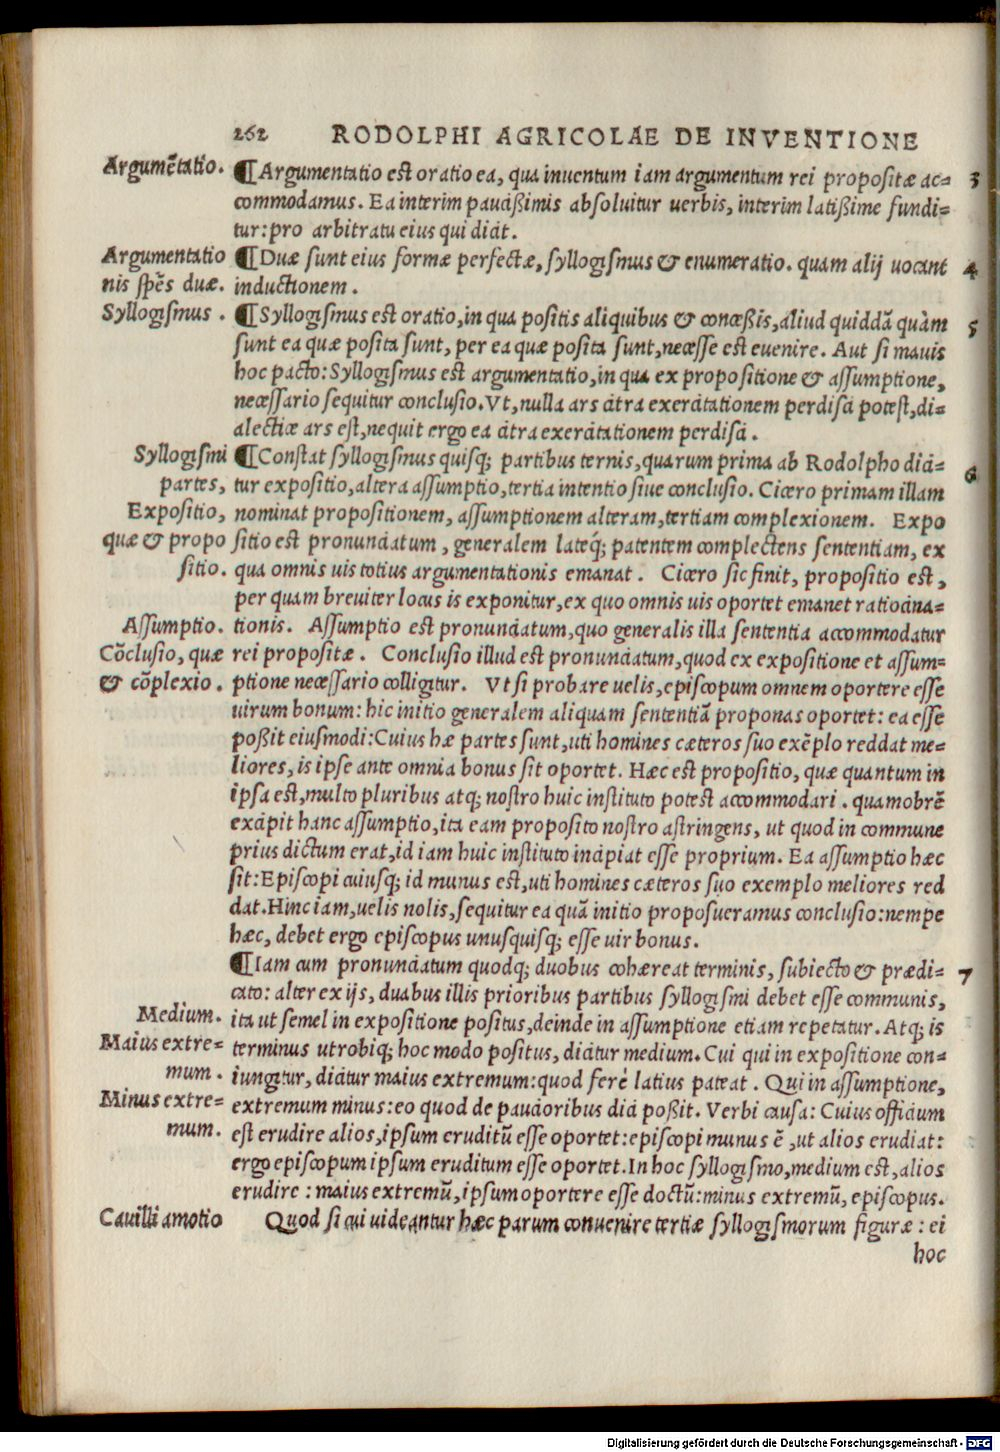 262 RODOLPHI AGRICOLAE DE INVENTIONE
Argumẽtatio.
¶Argumentatio est oratio ea, qua inuentum iam argumentum rei propositæ ac= 3
commodamus. Ea interim paucißimis absoluitur uerbis, interim latißime fundi=
tur: pro arbitratu eius qui dicit.
Argumentatio
nis spẽs duæ.
¶Duæ sunt eius formæ perfectæ, syllogismus & enumeratio. quam alij uocant 4
inductionem.
Syllogismus.
¶Syllogismus est oratio, in qua positis aliquibus & conceßis, aliud quiddã quàm 5
sunt ea quæ posita sunt, per ea quæ posita sunt, necesse est euenire. Aut si mauis
hoc pacto: Syllogismus est argumentatio, in qua ex propositione & assumptione,
necessario sequitur conclusio. Vt, nulla ars citra exercitationem perdisci potest, di=
alecticæ ars est, nequit ergo ea citra exercitationem perdisci.
Syllogismi
partes,
Expositio,
quæ & propo
sitio.
¶Constat syllogismus quisq; partibus ternis, quarum prima ab Rodolpho dici= 6
tur expositio, altera assumptio, tertia intentio siue conclusio. Cicero primam illam
nominat propositionem, assumptionem alteram, tertiam complexionem. Expo
sitio est pronunciatum, generalem lateq́; patentem complectens sententiam, ex
qua omnis uis totius argumentationis emanat. Cicero sic finit, propositio est,
per quam breuiter locus is exponitur, ex quo omnis uis oportet emanet ratiocina=
Assumptio.
Cõclusio, quæ
& cõplexio.
tionis. Assumptio est pronunciatum, quo generalis illa sententia accommodatur
rei propositæ. Conclusio illud est pronunciatum, quod ex expositione et assum=
ptione necessario colligitur. Vt si probare uelis, episcopum omnem oportere esse
uirum bonum: hic initio generalem aliquam sententiã proponas oportet: ea esse
poßit eiusmodi: Cuius hæ partes sunt, uti homines cæteros suo exẽplo reddat me=
liores, is ipse ante omnia bonus sit oportet. Hæc est propositio, quæ quantum in
ipsa est, multo pluribus atq; nostro huic instituto potest accommodari. quamobrẽ
excipit hanc assumptio, ita eam proposito nostro astringens, ut quod in commune
prius dictum erat, id iam huic instituto incipiat esse proprium. Ea assumptio hæc
sit: Episcopi cuiusq; id munus est, uti homines cæteros suo exemplo meliores red
dat. Hinc iam, uelis nolis, sequitur ea quã initio proposueramus conclusio: nempe
hæc, debet ergo episcopus unusquisq; esse uir bonus.
¶Iam cum pronunciatum quodq; duobus cohæreat terminis, subiecto & prædi= 7
cato: alter ex ijs, duabus illis prioribus partibus syllogismi debet esse communis,
Medium.
Maius extre=
mum.
Minus extre=
mum.
ita ut semel in expositione positus, deinde in assumptione etiam repetatur. Atq; is
terminus utrobiq; hoc modo positus, dicitur medium. Cui qui in expositione con=
iungitur, dicitur maius extremum: quod ferè latius pateat. Qui in assumptione,
extremum minus: eo quod de paucioribus dici poßit. Verbi causa: Cuius officium
est erudire alios, ipsum eruditũ esse oportet: episcopi munus ẽ, ut alios erudiat:
ergo episcopum ipsum eruditum esse oportet. In hoc syllogismo, medium est, alios
erudire: maius extremũ, ipsum oportere esse doctũ: minus extremũ, episcopus.
Cauilli amotio
Quod si cui uideantur hæc parum conuenire tertiæ syllogismorum figuræ: ei
hoc
Digitalisierung gefördert durch die Deutsche Forschungsgemeinschaft - DFG